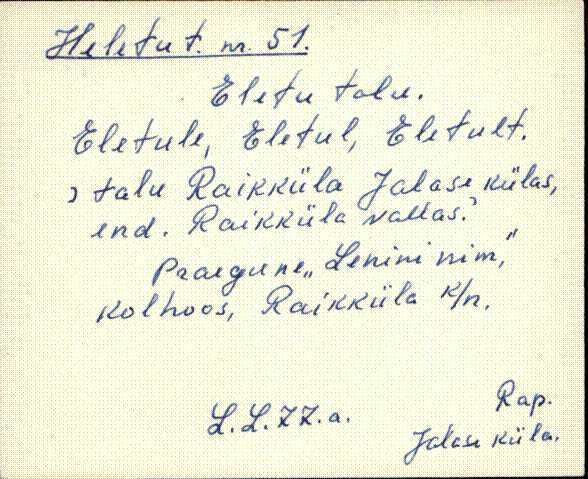 Heletu t. nr. 51.
Eletu talu.
Eletule, Eletul, Eletult.
, talu Raikküla Jalase külas,
end. Raikküla vallas.'
Praegune „Lenini nim,"
kolhoos, Raikküla k/n.
L. L. 77. a.
Rap.
Jalase küla.